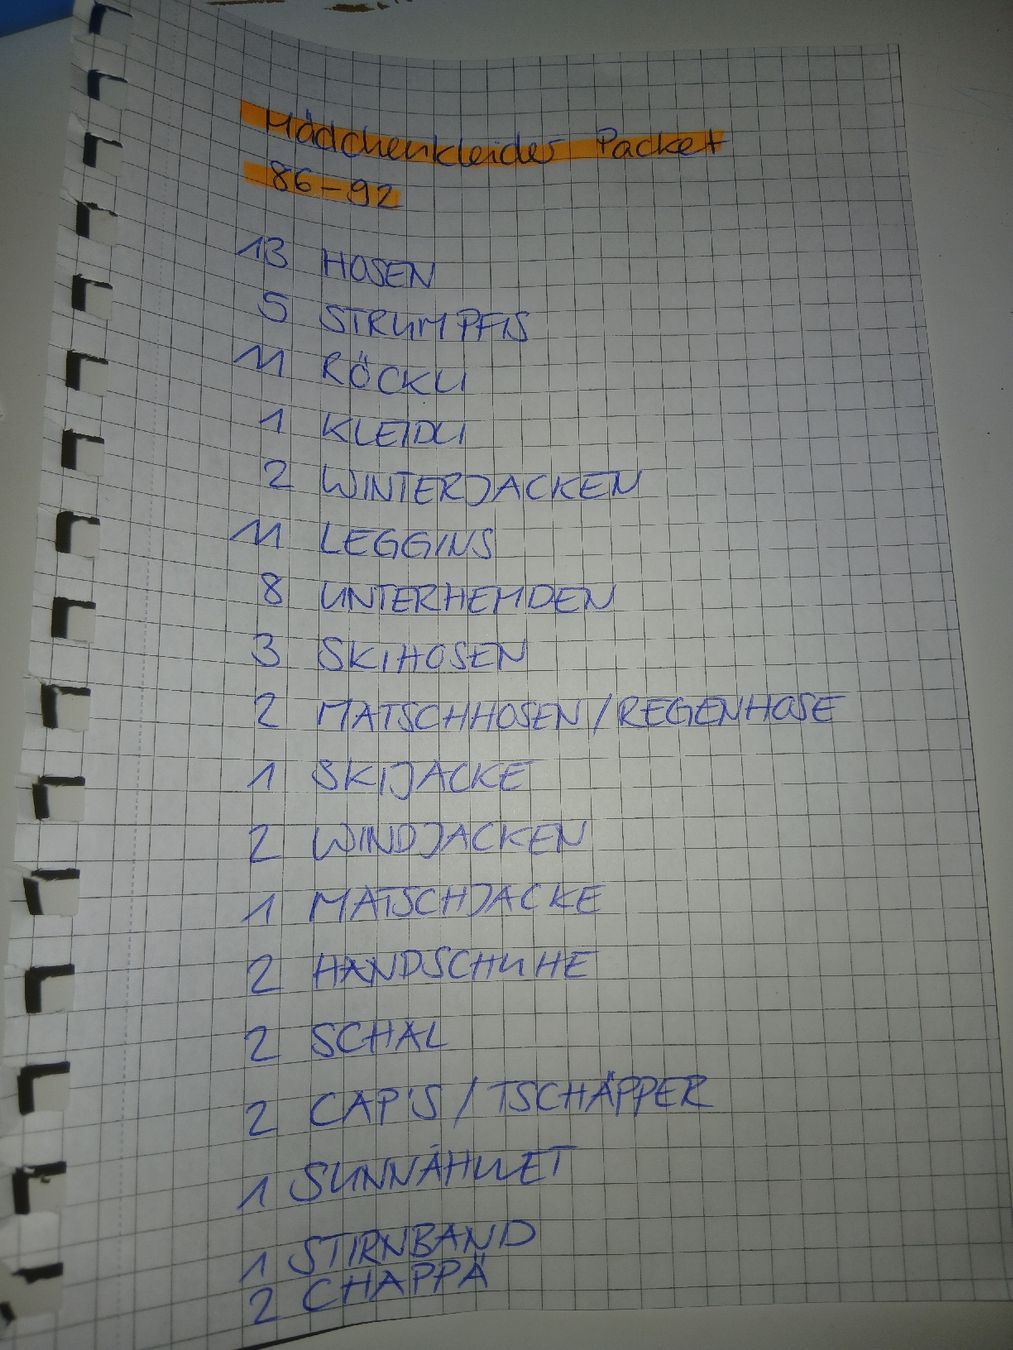 Mädchenkleider Packet
86-92
13 HOSEN
5 STRUMPFIS
11 RÖCKLI
1 KLEIDLI
2 WINTERJACKEN
11 LEGGINS
8 UNTERHEMDEN
3 SKIHOSEN
2 MATSCHHOSEN/REGENHOSE
1 SKIJACKE
2 WINDJACKEN
1 MATSCHJACKE
2 HANDSCHUHE
2 SCHAL
2 CAP'S / TSCHÄPPER
1 SUNNÄHUET
1 STIRNBAND
2 CHAPPÄ